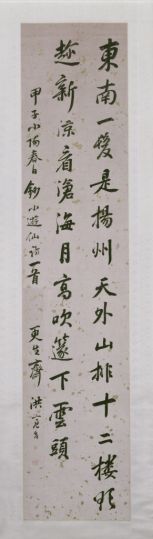 東南一發是揚州天外山排十二樓略
趁新涼看滄海月高吹篴下雲頭
甲子小陽春日鈔小遊仙詩一首
更生齋 洪